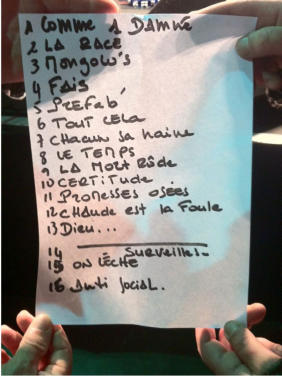 1 COMME 1 DAMNÉ
2 LA RACE
3 MONGOLO'S
4 FAIS
5 PREFAB'
6 TOUT CELA
7 CHACUN SA HAINE
8 LE TEMPS
9 LA MORT RÔDE
10 CERTITUDE
11 PROMESSES OSÉES
12 CHAUDE est la Foule
13 Dieu...
14 SURVEILLES-
15 ON LÈCHE
16 Anti SociaL.